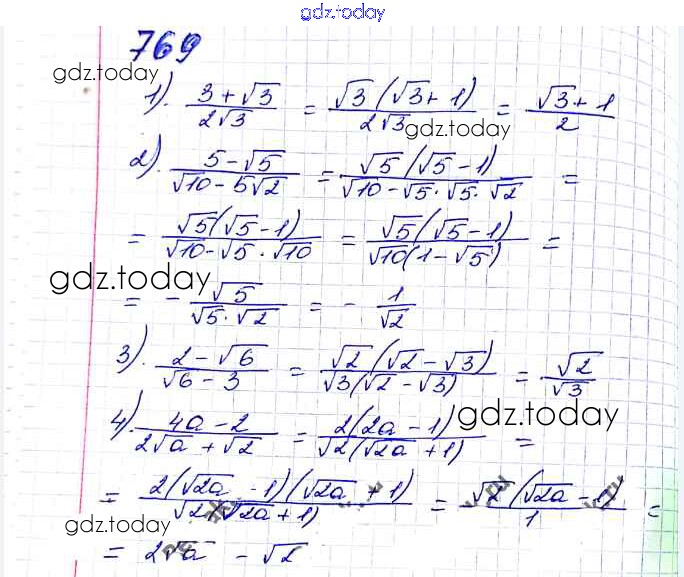 gdz.today
769
gdz.today
1). (3 + √3)/(2√3) = (√3(√3 + 1))/(2√3) = (√3 + 1)/2
gdz.today
2). (5 - √5)/(√10 - 5√2) = (√5(√5 - 1))/(√10 - √5 · √5 · √2) =
= (√5(√5 - 1))/(√10 - √5 · √10) = (√5(√5 - 1))/(√10(1 - √5)) =
gdz.today
= - √5/(√5 · √2) = - 1/√2
3). (2 - √6)/(√6 - 3) = (√2(√2 - √3))/(√3(√2 - √3)) = √2/√3
gdz.today
4). (4a - 2)/(2√a + √2) = (2(2a - 1))/(√2(√2a + 1)) =
= (2(√2a - 1)(√2a + 1))/(√2(√2a + 1)) = (√2(√2a - 1))/1 =
gdz.today
= 2√a - √2